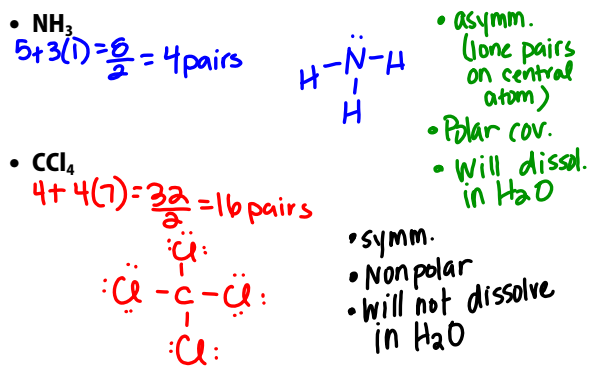 • NH₃
5+3(1)=8/2=4pairs
H-N-H
H
• asymm.
(lone pairs
on central
atom)
• Polar cov.
• Will dissol.
in H₂O
• CCl₄
4+4(7)=32/2=16pairs
Cl
Cl-C-Cl
Cl
• symm.
• Nonpolar
• Will not dissolve
in H₂O